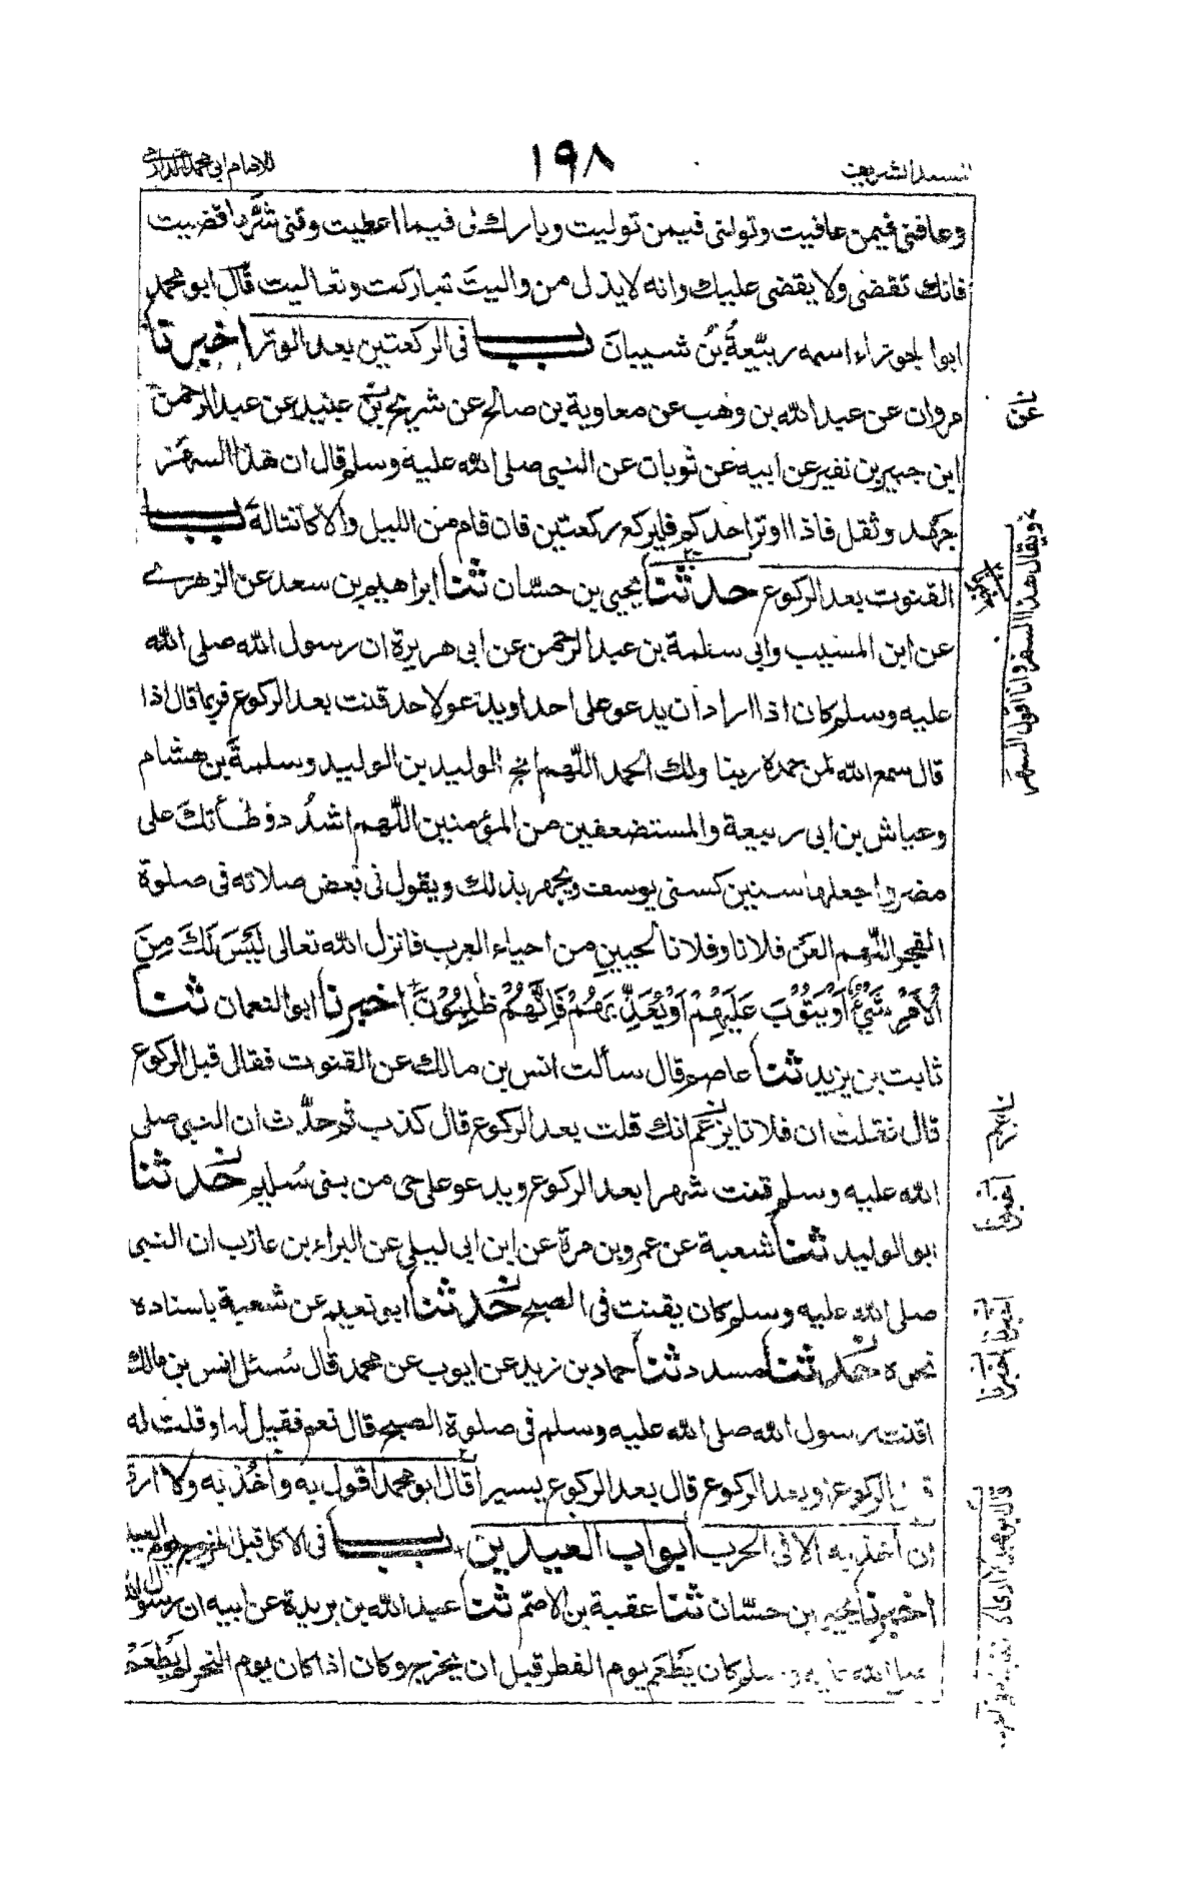 المسند الشريف
١٩٨
للامام ابي محمد الدارمي
وعافني فيمن عافيت وتولني فيمن توليت وبارك لي فيما اعطيت وقني شر ما قضيت
فانك تقضي ولا يقضى عليك وانه لا يذل من واليت تباركت وتعاليت قال ابو محمد
ابو الجوزاء اسمه ربيعة بن شيبان باب في الركعتين بعد الوتر اخبرنا
مروان عن عبد الله بن وهب عن معاوية بن صالح عن شريح بن عبيد عن عبد الرحمن
ابن جبير بن نفير عن ابيه عن ثوبان عن النبي صلى الله عليه وسلم قال ان هذا السهر
جهد وثقل فاذا اوتر احدكم فليركع ركعتين فان قام من الليل والا كانتا له باب
القنوت بعد الركوع حدثنا يحيى بن حسّان ثنا ابراهيم بن سعد عن الزهري
عن ابن المسيب وابي سلمة بن عبد الرحمن عن ابي هريرة ان رسول الله صلى الله
عليه وسلم كان اذا اراد ان يدعو على احد او يدعو لاحد قنت بعد الركوع فربما قال اذا
قال سمع الله لمن حمده ربنا ولك الحمد اللهم انج الوليد بن الوليد وسلمة بن هشام
وعياش بن ابي ربيعة والمستضعفين من المؤمنين اللهم اشدُد وطأتك على
مضر واجعلها سنين كسني يوسف ويجهر بذلك ويقول في بعض صلاته في صلوة
الفجر اللهم العن فلانا وفلانا لحيين من احياء العرب فانزل الله تعالى لَيْسَ لَكَ مِنَ
الْاَمْرِ شَيْءٌ اَوْ يَتُوْبَ عَلَيْهِمْ اَوْ يُعَذِّبَهُمْ فَاِنَّهُمْ ظٰلِمُوْنَ اخبرنا ابو النعمان ثنا
ثابت بن يزيد ثنا عاصم قال سألت انس بن مالك عن القنوت فقال قبل الركوع
قال فقلت ان فلانا يزعم انك قلت بعد الركوع قال كذب ثم حدّث ان النبي صلى
الله عليه وسلم قنت شهرا بعد الركوع ويدعو على حي من بني سُليم حدثنا
ابو الوليد ثنا شعبة عن عمرو بن مرة عن ابن ابي ليلى عن البراء بن عازب ان النبي
صلى الله عليه وسلم كان يقنت في الصبح حدثنا ابو نعيم عن شعبة باسناده
نحوه حدثنا مسدد ثنا حماد بن زيد عن ايوب عن محمد قال سُئل انس بن مالك
اقنت رسول الله صلى الله عليه وسلم في صلوة الصبح قال نعم فقيل له او قلت له
قبل الركوع او بعد الركوع قال بعد الركوع يسيرا قال ابو محمد اقول به وآخُذ به ولا ارى
ان آخذ به الا في الحرب ابواب العيدين باب في الاكل قبل الخروج يوم العيد
اخبرنا يحيى بن حسّان ثنا عقبة بن الاصمّ ثنا عبد الله بن بريدة عن ابيه ان رسول الله
صلى الله عليه وسلم كان يَطْعَم يوم الفطر قبل ان يخرج وكان اذا كان يوم النحر لم يَطْعَمْ
نا عن
ويقال هذا السفر وانا اقول السهر
اخبرنا
اخبرنا اخبرنا